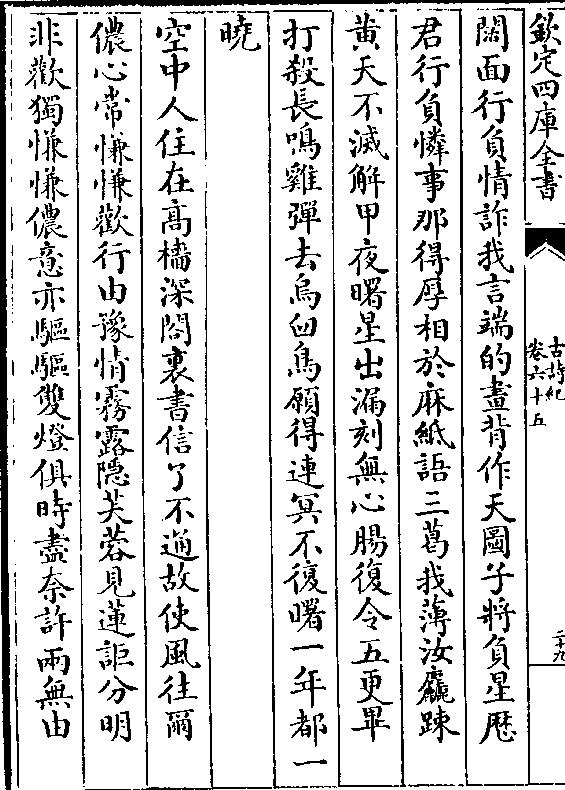 欽定四庫全書
古詩紀
卷六十五
二十九
闊面行負情詐我言端的畫背作天圖子將負星歴
君行負憐事那得厚相於麻紙語三葛我薄汝麤踈
黄天不滅解甲夜曙星出漏刻無心腸復令五更畢
打殺長鳴雞彈去烏臼鳥願得連冥不復曙一年都一
曉
空中人住在髙檣深閣裏書信了不通故使風往爾
儂心常慊慊歡行由豫情霧露隠芙蓉見蓮詎分明
非歡獨慊慊儂意亦驅驅雙燈俱時盡奈許兩無由